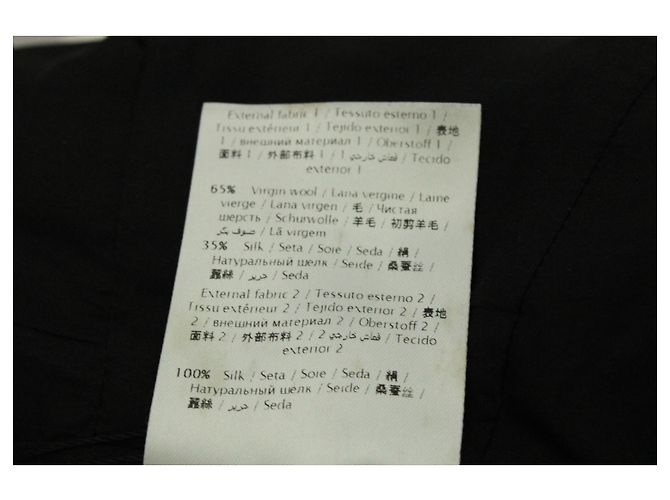 External fabric 1 / Tessuto esterno 1 /
Tissu extérieur 1 / Tejido exterior 1 / 表地
1 / внешний материал 1 / Oberstoff 1 /
面料 1 / 外部布料 1 / قماش خارجي 1 / Tecido
exterior 1
65% Virgin wool / Lana vergine / Laine
vierge / Lana virgen / 毛 / Чистая
шерсть / Schurwolle / 羊毛 / 初剪羊毛 /
صوف بكر / Lã virgem
35% Silk / Seta / Soie / Seda / 絹 /
Натуральный шелк / Seide / 桑蚕丝 /
蠶絲 / حرير / Seda
External fabric 2 / Tessuto esterno 2 /
Tissu extérieur 2 / Tejido exterior 2 / 表地
2 / внешний материал 2 / Oberstoff 2 /
面料 2 / 外部布料 2 / قماش خارجي 2 / Tecido
exterior 2
100% Silk / Seta / Soie / Seda / 絹 /
Натуральный шелк / Seide / 桑蚕丝 /
蠶絲 / حرير / Seda